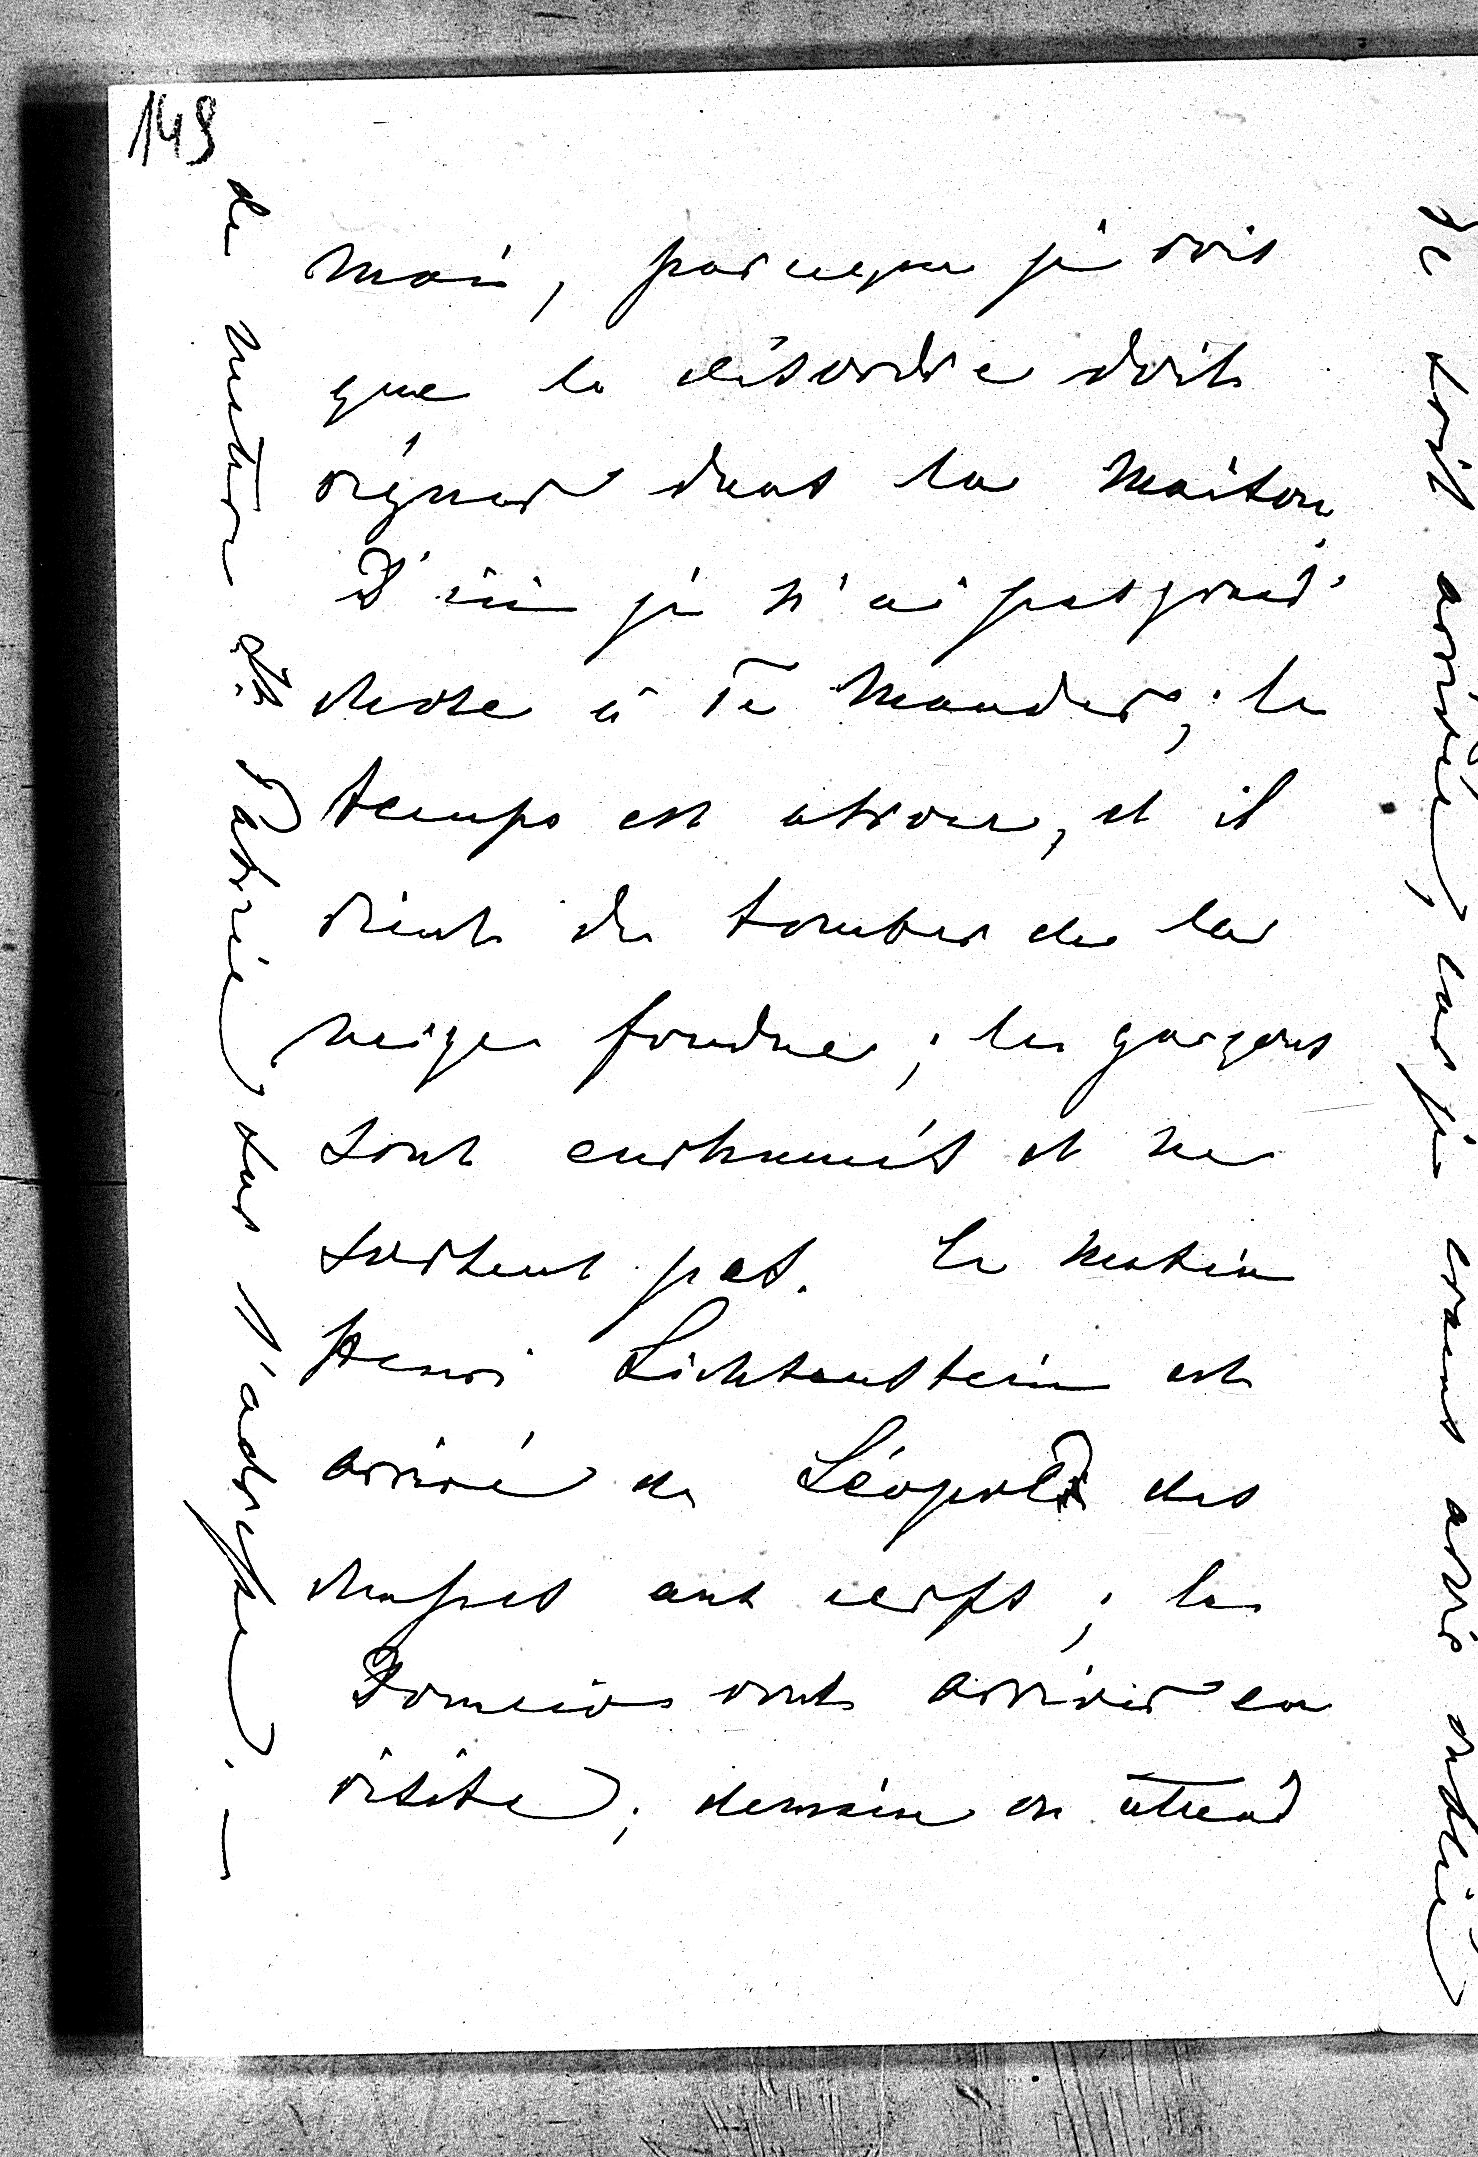 149
mais, parceque je vois
que le désordre doit
régner dans la maison.
D'ici je n'ai pas grand'
chose à Te mander; le
temps est atroce, et il
vient de tomber de la
neige fondue; les garçons
sont enrhumés et ne
sortent pas. Ce matin
Henri Lichtenstein est
arrivé de Léopold des
chasses aux cerfs; les
vont arriver en
visite; demain on attend
de mettre Patrie, sur l'adresse. —
se soit arrivée, car je crains avoir oublié